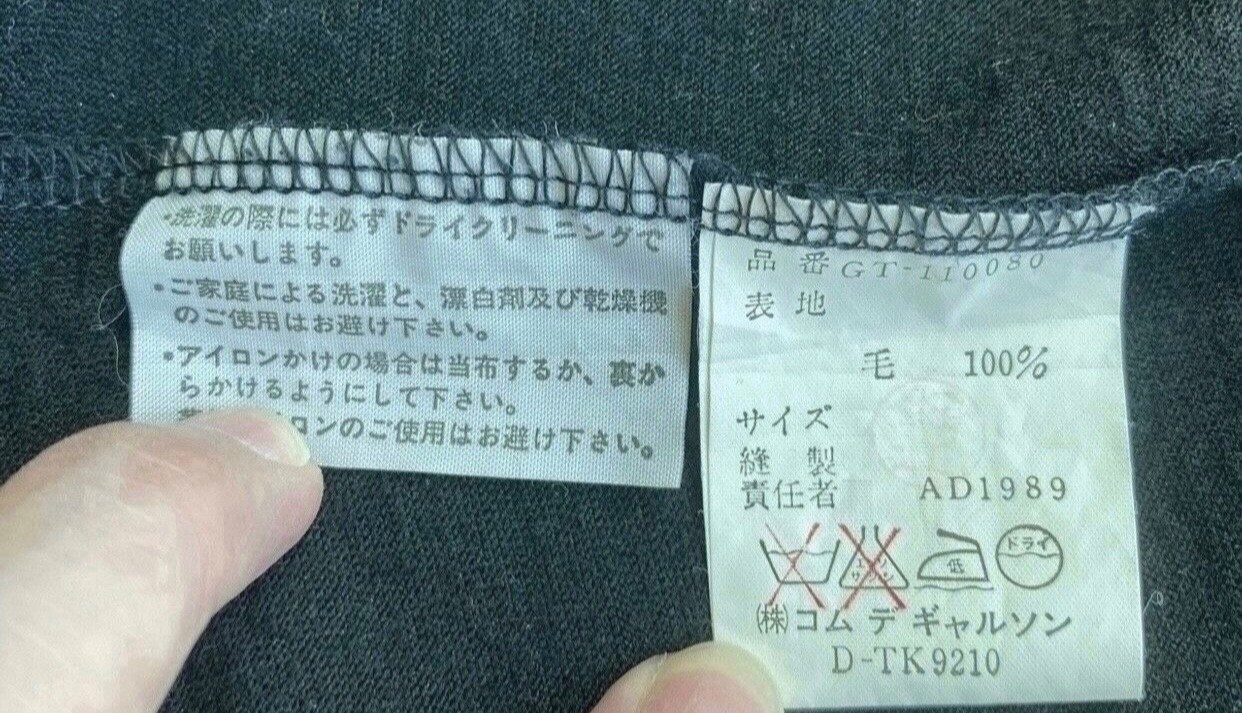 ・洗濯の際には必ずドライクリーニングで
お願いします。
・ご家庭による洗濯と、漂白剤及び乾燥機
のご使用はお避け下さい。
・アイロンかけの場合は当布するか、裏か
らかけるようにして下さい。
ロンのご使用はお避け下さい。
品 番 GT-110080
表 地
毛 100%
サイズ
縫 製
責任者 AD1989
低 ドライ
㈱コム デ ギャルソン
D-TK9210